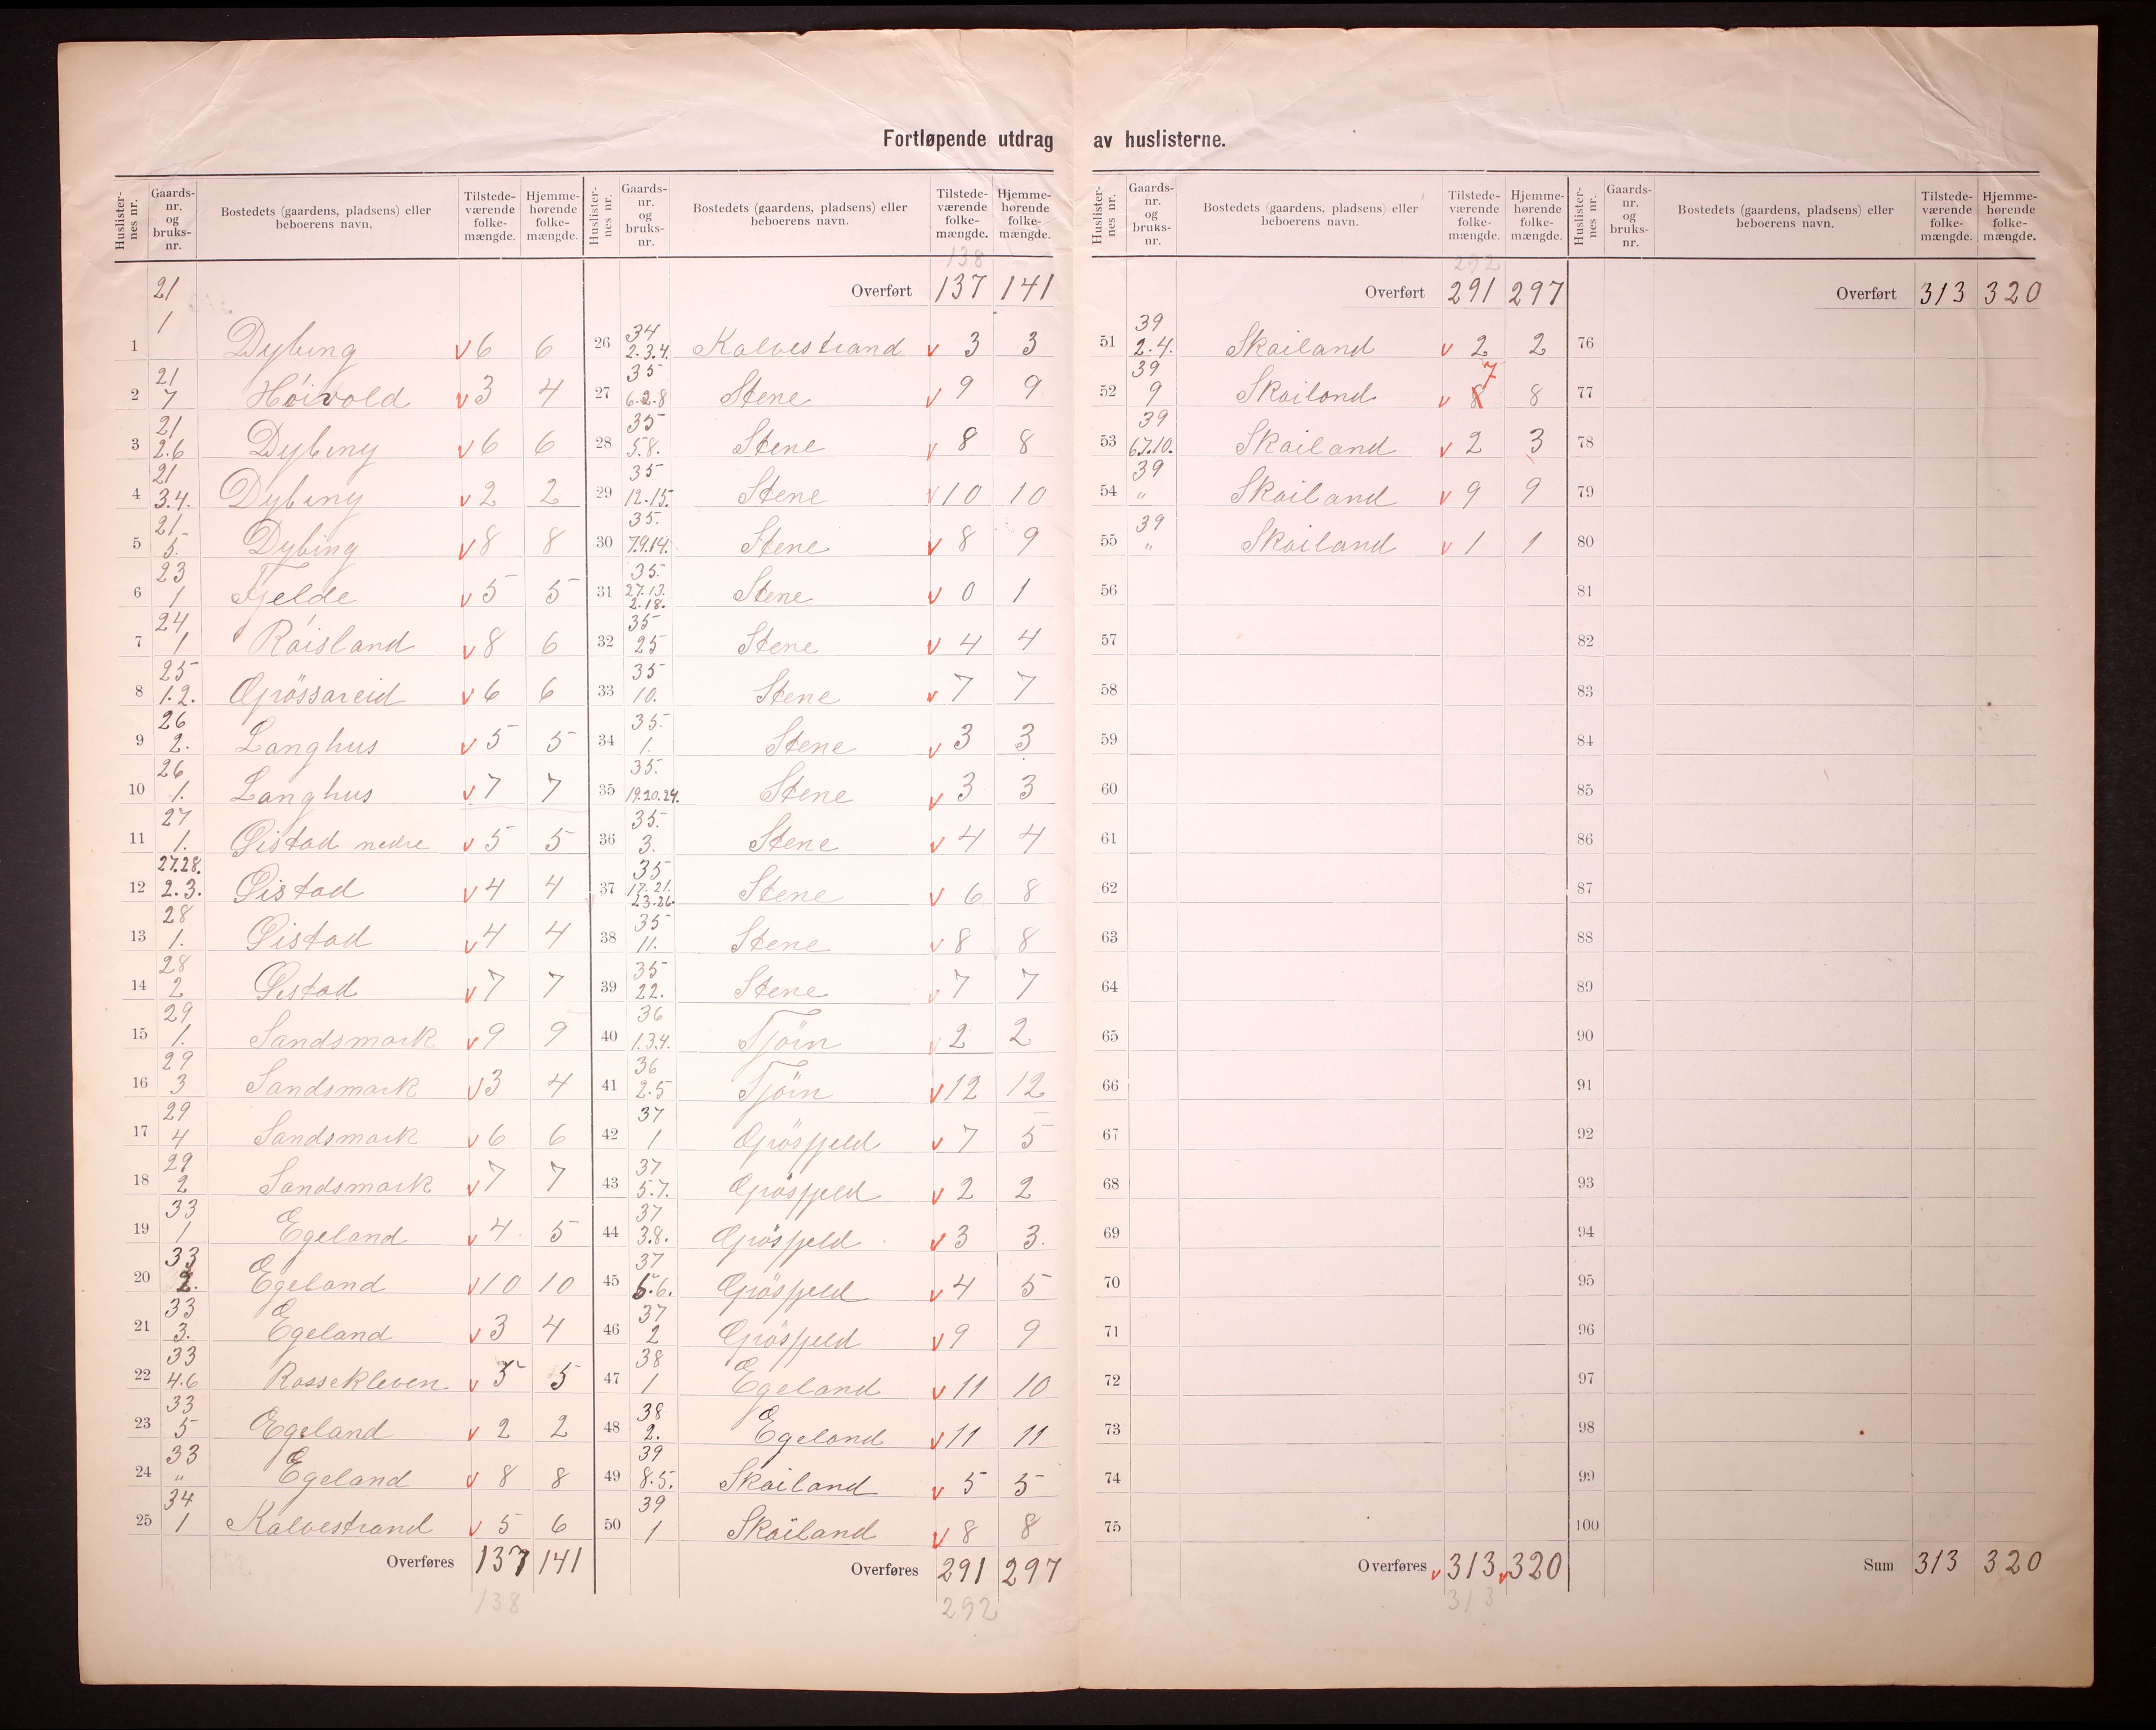 Fortløpende utdrag av huslisterne.
Huslisternes nr. | Gaards-nr. og bruks-nr. | Bostedets (gaardens, pladsens) eller beboerens navn. | Tilstedeværende folkemængde. | Hjemmehørende folkemængde.
1 | 21 1 | Dybing | v 6 | 6
2 | 21 7 | Høivold | v 3 | 4
3 | 21 2.6 | Dybing | v 6 | 6
4 | 21 3.4. | Dybing | v 2 | 2
5 | 21 5. | Dybing | v 8 | 8
6 | 23 1 | Fjelde | v 5 | 5
7 | 24 1 | Röisland | v 8 | 6
8 | 25 1.2. | Grössareid | v 6 | 6
9 | 26 2. | Langhus | v 5 | 5
10 | 26 1. | Langhus | v 7 | 7
11 | 27 1. | Øistad nedre | v 5 | 5
12 | 27.28. 2.3. | Øistad | v 4 | 4
13 | 28 1. | Øistad | v 4 | 4
14 | 28 2 | Øistad | v 7 | 7
15 | 29 1. | Sandsmark | v 9 | 9
16 | 29 3 | Sandsmark | v 3 | 4
17 | 29 4 | Sandsmark | v 6 | 6
18 | 29 2 | Sandsmark | v 7 | 7
19 | 33 1 | Egeland | v 4 | 5
20 | 33 2. | Egeland | v 10 | 10
21 | 33 3. | Egeland | v 3 | 4
22 | 33 4.6 | Rossekleven | v | 5
23 | 33 5 | Egeland | v 2 | 2
24 | 33 " | Egeland | v 8 | 8
25 | 34 1 | Kalvestrand | v 5 | 6
Overføres 137 141
138
Huslisternes nr. | Gaards-nr. og bruks-nr. | Bostedets (gaardens, pladsens) eller beboerens navn. | Tilstedeværende folkemængde. | Hjemmehørende folkemængde.
138
Overført 137 141
26 | 34 2.3.4. | Kalvestrand | v 3 | 3
27 | 35 6.2.8 | Stene | v 9 | 9
28 | 35 5.8. | Stene | v 8 | 8
29 | 35 12.15. | Stene | v 10 | 10
30 | 35. 7.9.14. | Stene | v 8 | 9
31 | 35. 27.13. 2.18. | Stene | v 0 | 1
32 | 35 25 | Stene | v 4 | 4
33 | 35 10. | Stene | v 7 | 7
34 | 35. 1. | Stene | v 3 | 3
35 | 35. 19.20.24. | Stene | v 3 | 3
36 | 35. 3. | Stene | v 4 | 4
37 | 35 17.21. 23.26. | Stene | v 6 | 8
38 | 35 11. | Stene | v 8 | 8
39 | 35 22. | Stene | v 7 | 7
40 | 36 1.3.4. | Tjörn | v 2 | 2
41 | 36 2.5 | Tjörn | v 12 | 12
42 | 37 1 | Grösfjeld | v 7 | 5
43 | 37 5.7. | Grösfjeld | v 2 | 2
44 | 37 3.8. | Grösfjeld | v 3 | 3.
45 | 37 6. | Grösfjeld | v 4 | 5
46 | 37 2 | Grösfjeld | v 9 | 9
47 | 38 1 | Egeland | v 11 | 10
48 | 38 2. | Egeland | v 11 | 11
49 | 39 8.5. | Skailand | v 5 | 5
50 | 39 1 | Skailand | v 8 | 8
Overføres 291 297
292
Huslisternes nr. | Gaards-nr. og bruks-nr. | Bostedets (gaardens, pladsens) eller beboerens navn. | Tilstedeværende folkemængde. | Hjemmehørende folkemængde.
292
Overført 291 297
51 | 39 2.4. | Skailand | v 2 | 2
52 | 39 9 | Skailand | v 8 7 | 8
53 | 39 6.7.10. | Skailand | v 2 | 3
54 | 39 " | Skailand | v 9 | 9
55 | 39 " | Skailand | v 1 | 1
56
57
58
59
60
61
62
63
64
65
66
67
68
69
70
71
72
73
74
75
Overføres v 313 v 320
313
Huslisternes nr. | Gaards-nr. og bruks-nr. | Bostedets (gaardens, pladsens) eller beboerens navn. | Tilstedeværende folkemængde. | Hjemmehørende folkemængde.
Overført 313 320
76
77
78
79
80
81
82
83
84
85
86
87
88
89
90
91
92
93
94
95
96
97
98
99
100
Sum 313 320